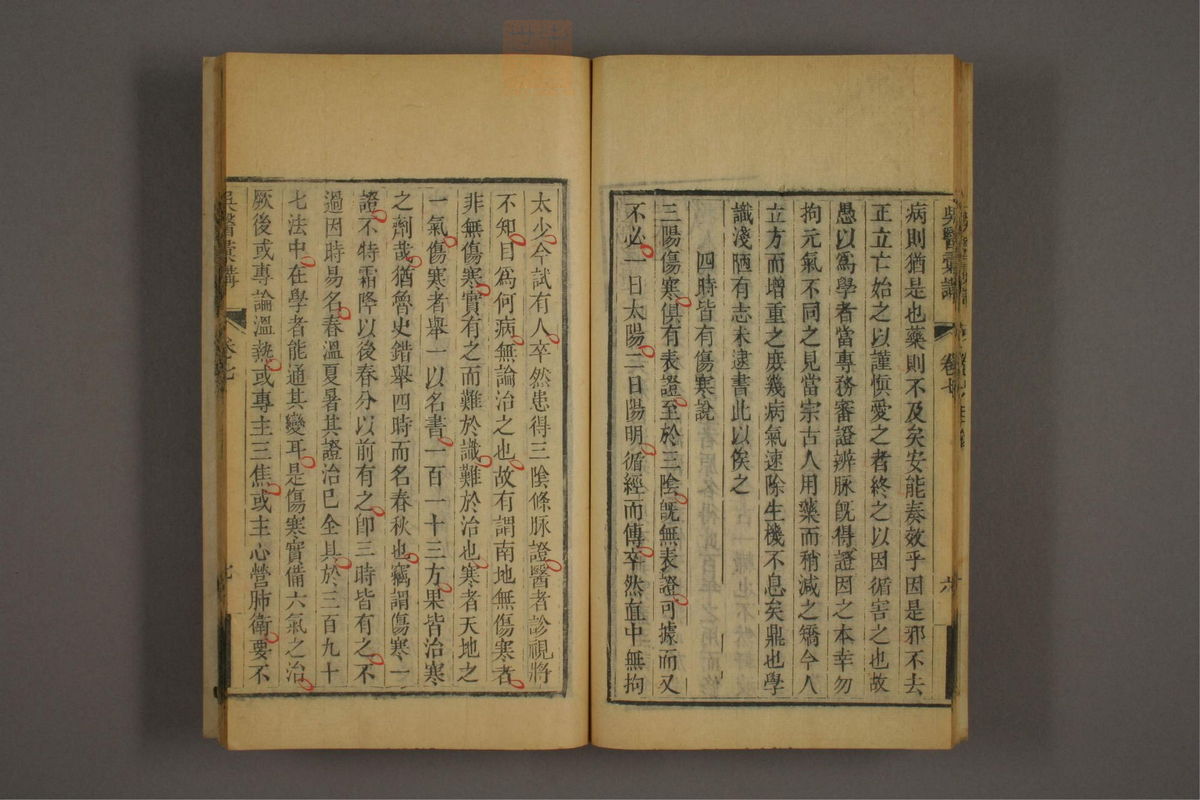 吳醫彙講
卷七
六
病則猶是也藥則不及矣安能奏效乎因是邪不去
正立亡始之以謹慎愛之者終之以因循害之也故
愚以爲學者當專務審證辨脉旣得證因之本幸勿
拘元氣不同之見當宗古人用藥而稍減之矯今人
立方而增重之庻幾病氣速除生機不息矣鼎也學
識淺陋有志未逮書此以俟之
四時皆有傷寒說
三陽傷寒俱有表證至於三陰旣無表證可據而又
不必一日太陽二日陽明循經而傳卒然直中無拘
太少今試有人卒然患得三陰條脉證醫者診視將
不知目爲何病無論治之也故有謂南地無傷寒者
非無傷寒實有之而難於識難於治也寒者天地之
一氣傷寒者舉一以名書一百一十三方果皆治寒
之劑哉猶魯史錯舉四時而名春秋也竊謂傷寒一
證不特霜降以後春分以前有之卽三時皆有之不
過因時易名春溫夏暑其證治已全具於三百九十
七法中在學者能通其變耳是傷寒實備六氣之治
厥後或專論溫熱或專主三焦或主心營肺衛要不
吳醫彙講
卷七
七